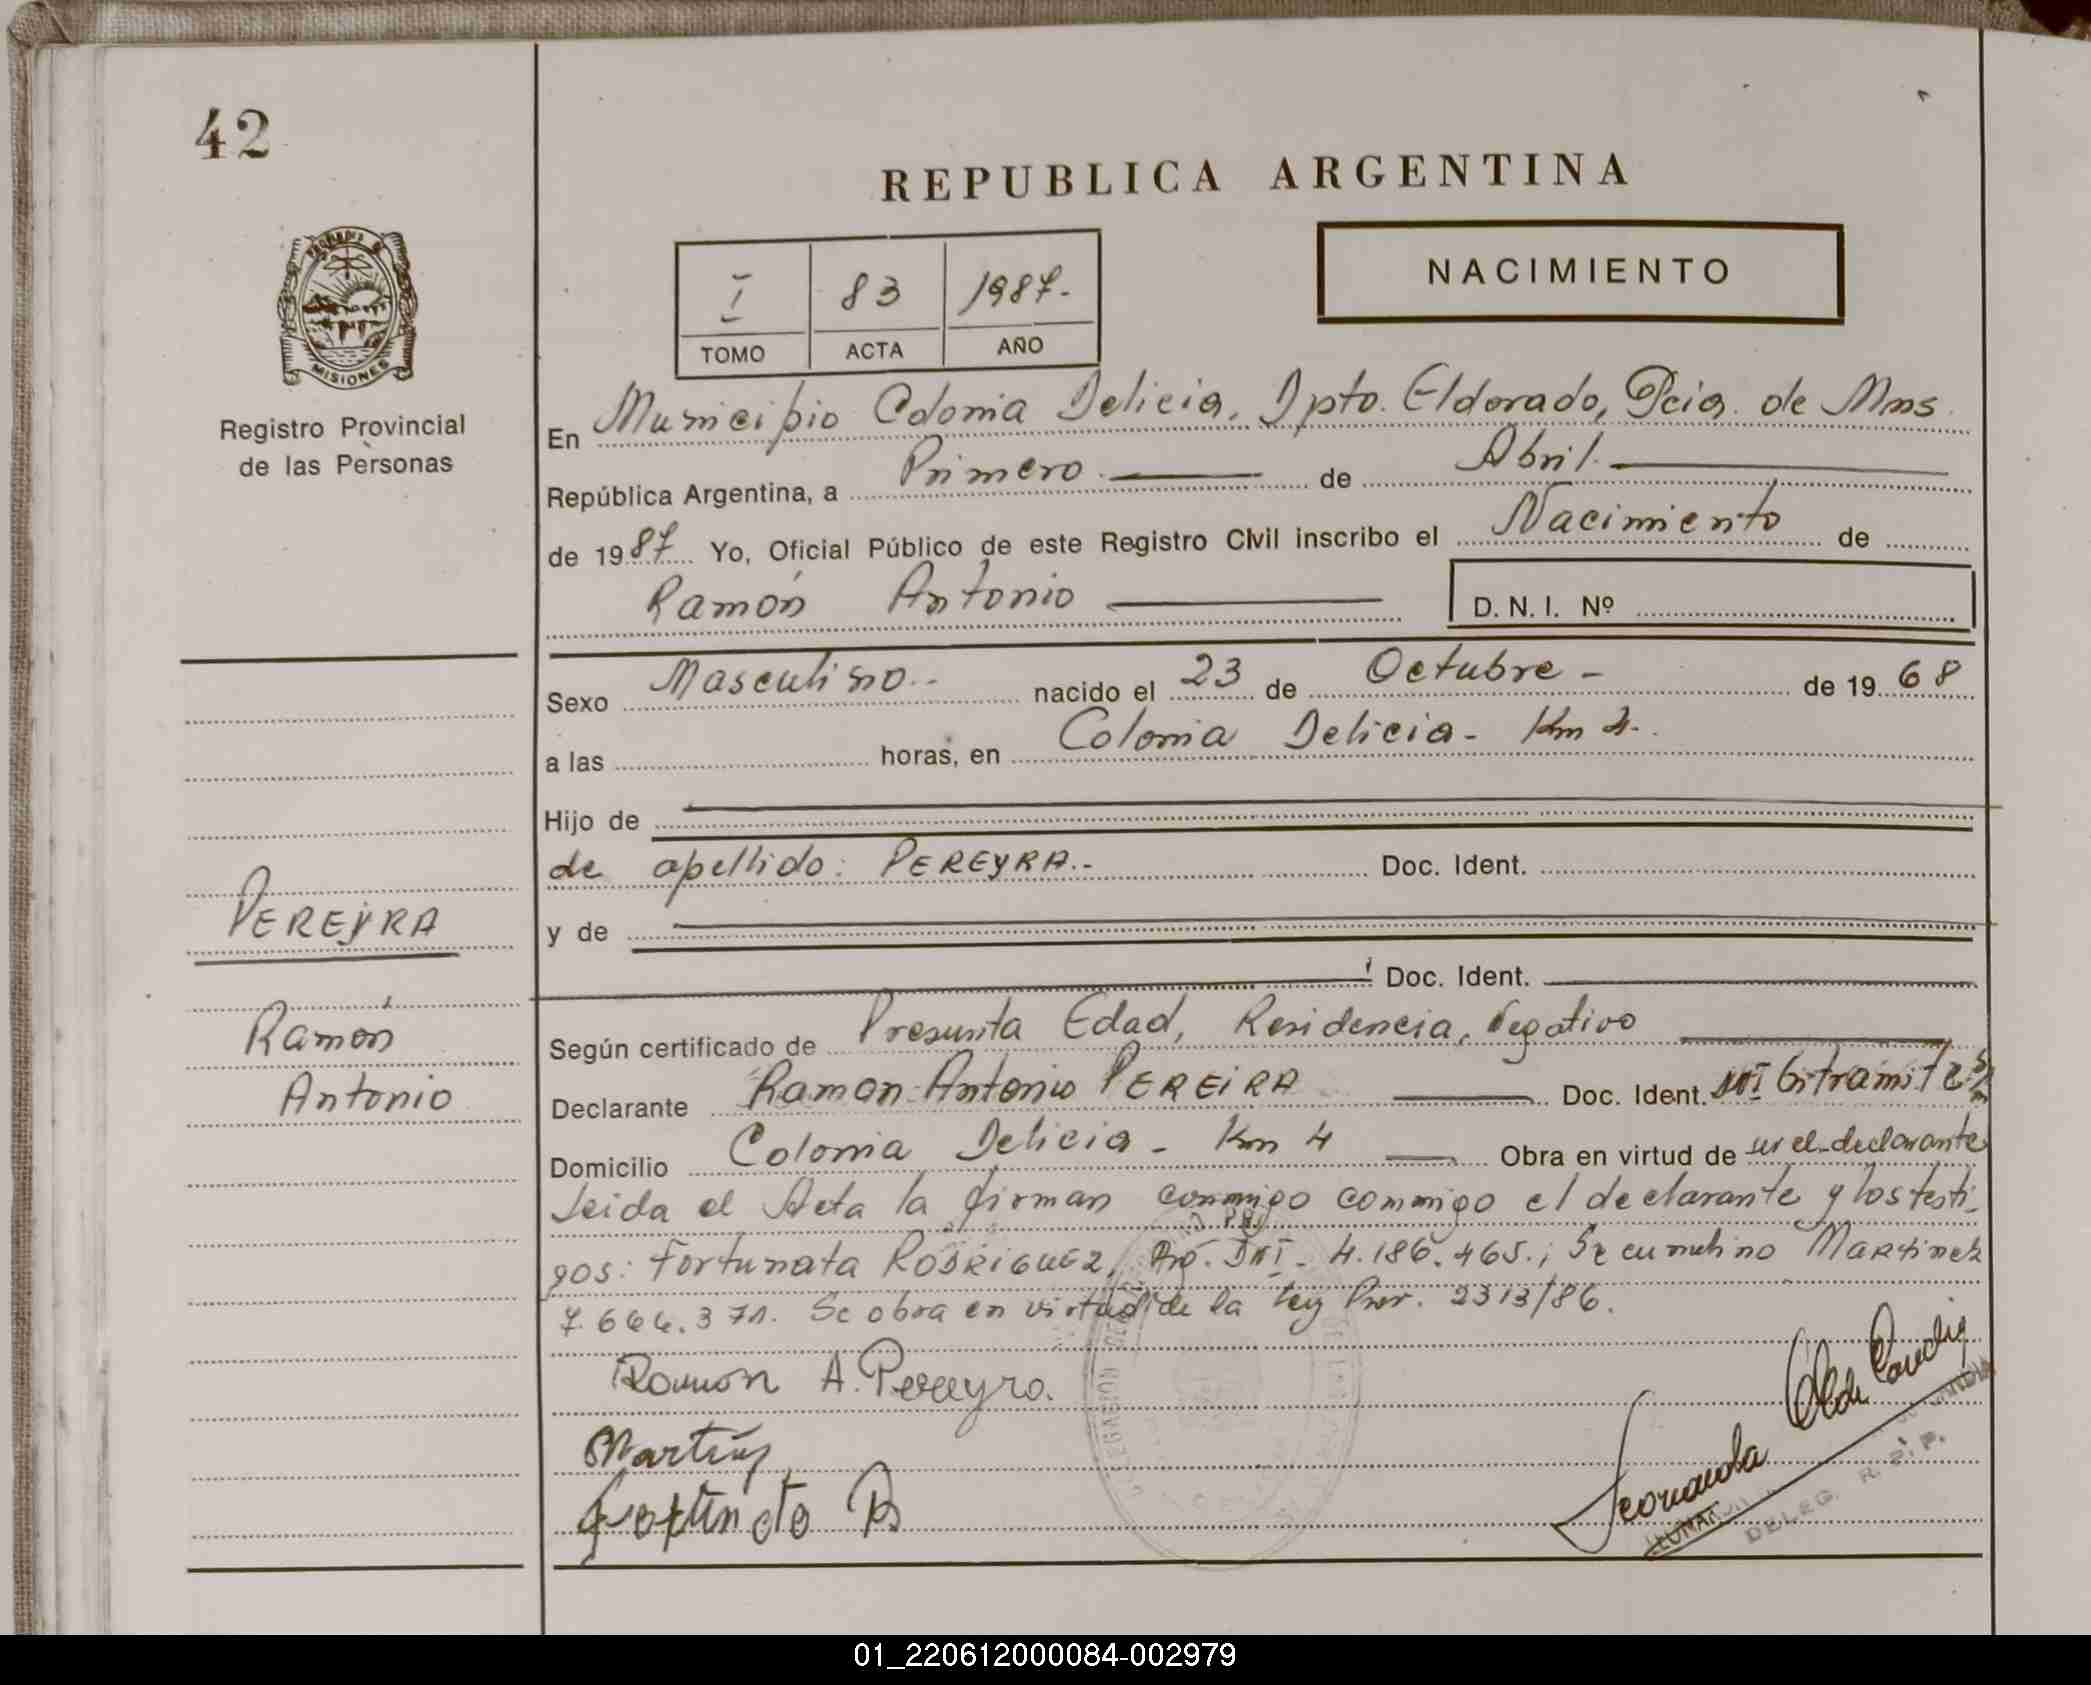 42
REPUBLICA ARGENTINA
PROVINCIA DE
MISIONES
Registro Provincial
de las Personas
I 83 1987.-
TOMO ACTA AÑO
NACIMIENTO
En Municipio Colonia Delicia, Dpto. Eldorado, Pcia. de Mnes.
República Argentina, a Primero de Abril.
de 1987 Yo, Oficial Público de este Registro Civil inscribo el Nacimiento de
Ramón Antonio D. N. I. Nº
Sexo Masculino.- nacido el 23 de Octubre - de 1968
a las horas, en Colonia Delicia - Km 4.
Hijo de
de apellido: PEREYRA.- Doc. Ident.
y de
Doc. Ident.
PEREYRA
Ramón
Antonio
Según certificado de Presunta Edad, Residencia, Negativo
Declarante Ramon Antonio PEREIRA Doc. Ident.
Domicilio Colonia Delicia - Km 4 Obra en virtud de ser el declarante
Leida el Acta la firman conmigo conmigo el declarante y los testi-
gos: Fortunata RODRIGUEZ, DNI - 4.186.465.; Secundino Martinez
7.664.371. Se obra en virtud de la ley Prov. 2313/86.
Ramon A. Pereyra.
Fortunato R
DELEG. R. P. P.
01_220612000084-002979